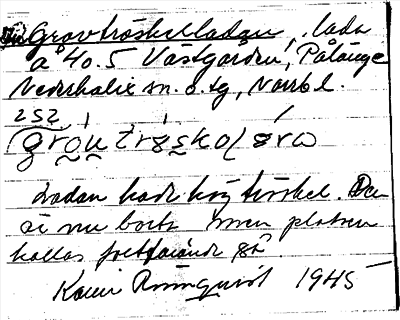 Gravtröskelladan, lada
å 40.5 Västgården, Pålänge
Nederkalix sn. o. tg, Norrb l.
252
Ladan hade hög tröskel. Den
är nu borta men platsen
kallas fortfarande så.
Karin Rönnquist 1945